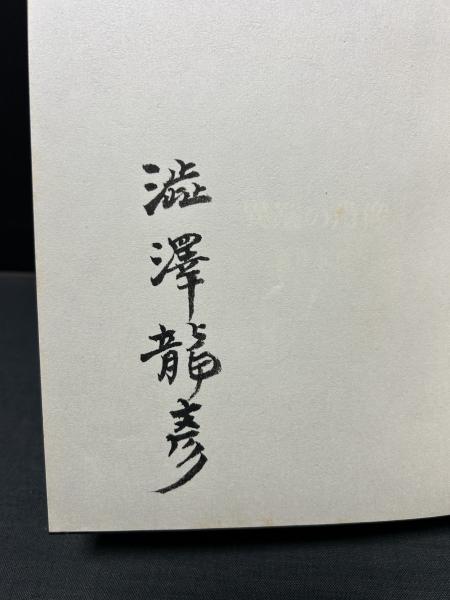 澁澤龍彥